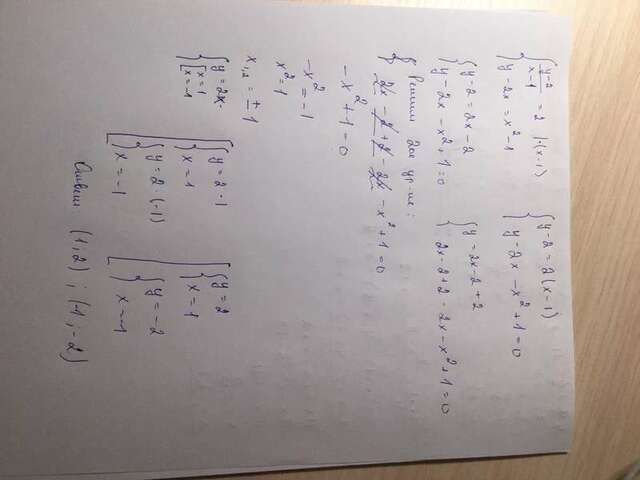 { (y-2)/(x-1) = 2 |·(x-1)
{ y-2x = x²-1
{ y-2 = 2(x-1)
{ y-2x-x²+1=0
{ y-2=2x-2
{ y-2x-x²+1=0
{ y=2x-2+2
2x-2+2-2x-x²+1=0
Решим 2ое ур-ие:
2x-2+2-2x-x²+1=0
-x²+1=0
-x²=-1
x²=1
x₁,₂=±1
{ y=2x
[ x=1
[ x=-1
[ { y=2·1
{ x=1
{ y=2·(-1)
{ x=-1
[ { y=2
{ x=1
{ y=-2
{ x=-1
Ответ: (1;2) ; (-1;-2)